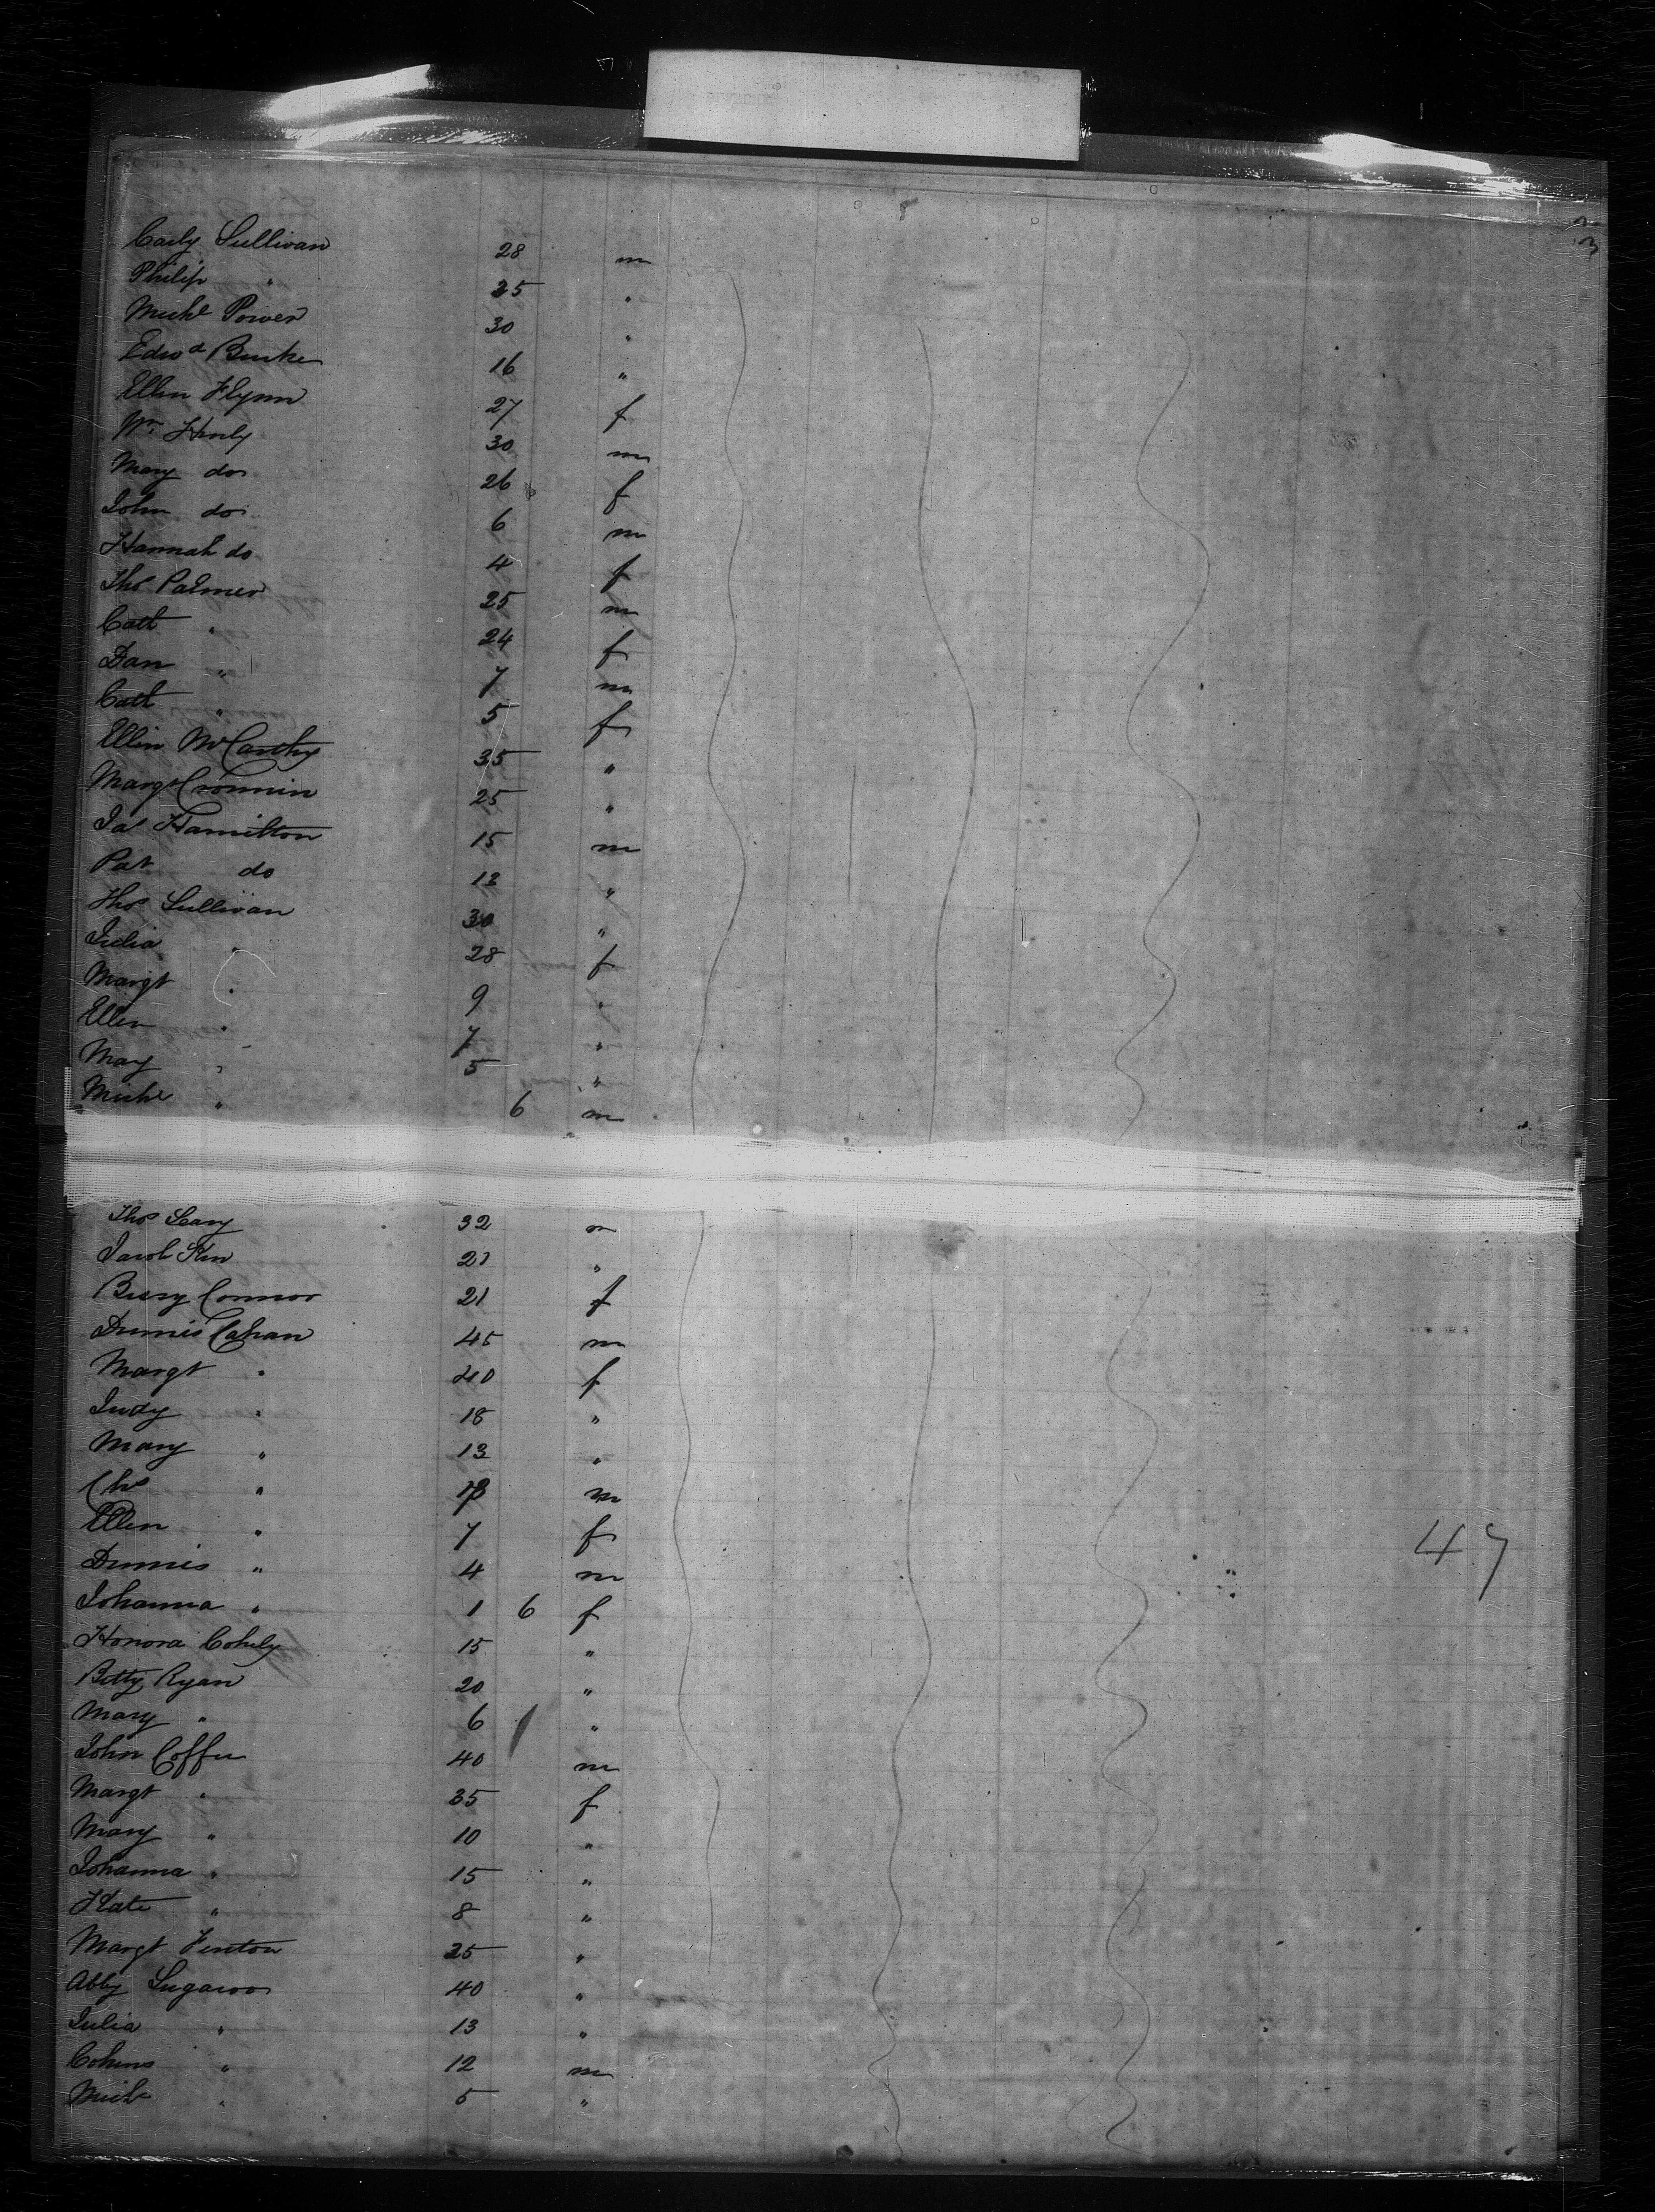 Sullivan 28 m
Philip " 35 "
Michl Power 30 "
Edwd Burke 16 "
Ellen Flynn 27 f
Wm Henly 30 m
Mary do 26 f
John do 6 m
Hannah do 4 f
Thos Palmer 25 m
Cath " 24 f
Dan " 7 m
Cath " 5 f
Ellin McCarthy 35 "
Margt Cronnin 25 "
Jas Hamilton 15 m
Pat do 13 "
Thos Sullivan 30 "
Julia " 28 f
Margt " 9 "
Ellen " 7 "
May " 5 "
Michl " 6 m
Thos Leary 32 m
Jacob 21 "
Connor 21 f
Dennis Cahan 45 m
Margt " 40 f
Judy " 18 "
Mary " 13 "
Chs " m
Ellen " 7 f
Dennis " 4 m
Johanna " 1 6 f
Honora 15 "
Betty Ryan 20 "
Mary " 6 "
John Coffee 40 m
Margt " 35 f
Mary " 10 "
Johanna " 15 "
Kate " 8 "
Margt Fenton 25 "
Abby 40 "
Julia " 13 "
" 12 m
Mich " 5 "
47